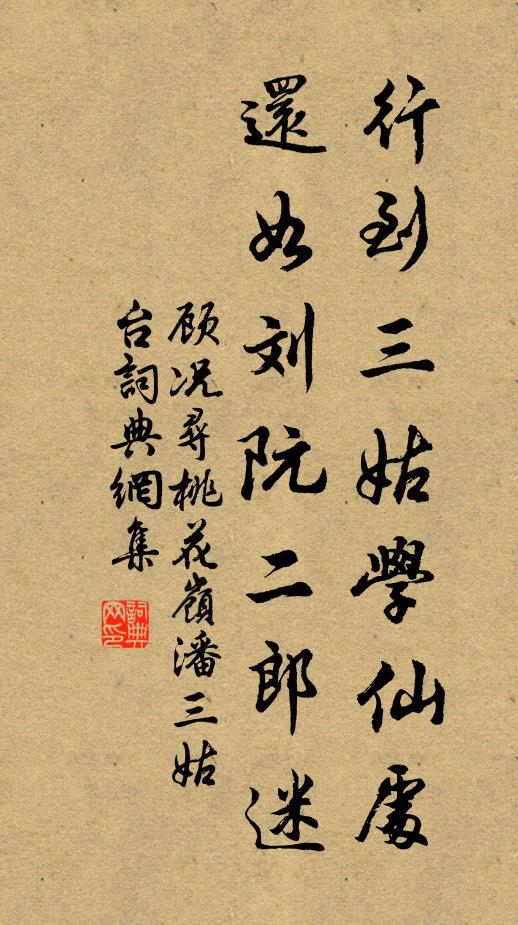 行到三姑學仙處
還如刘阮二郎迷
顾况尋桃花嶺潘三姑
台詞典網集
詞典网印